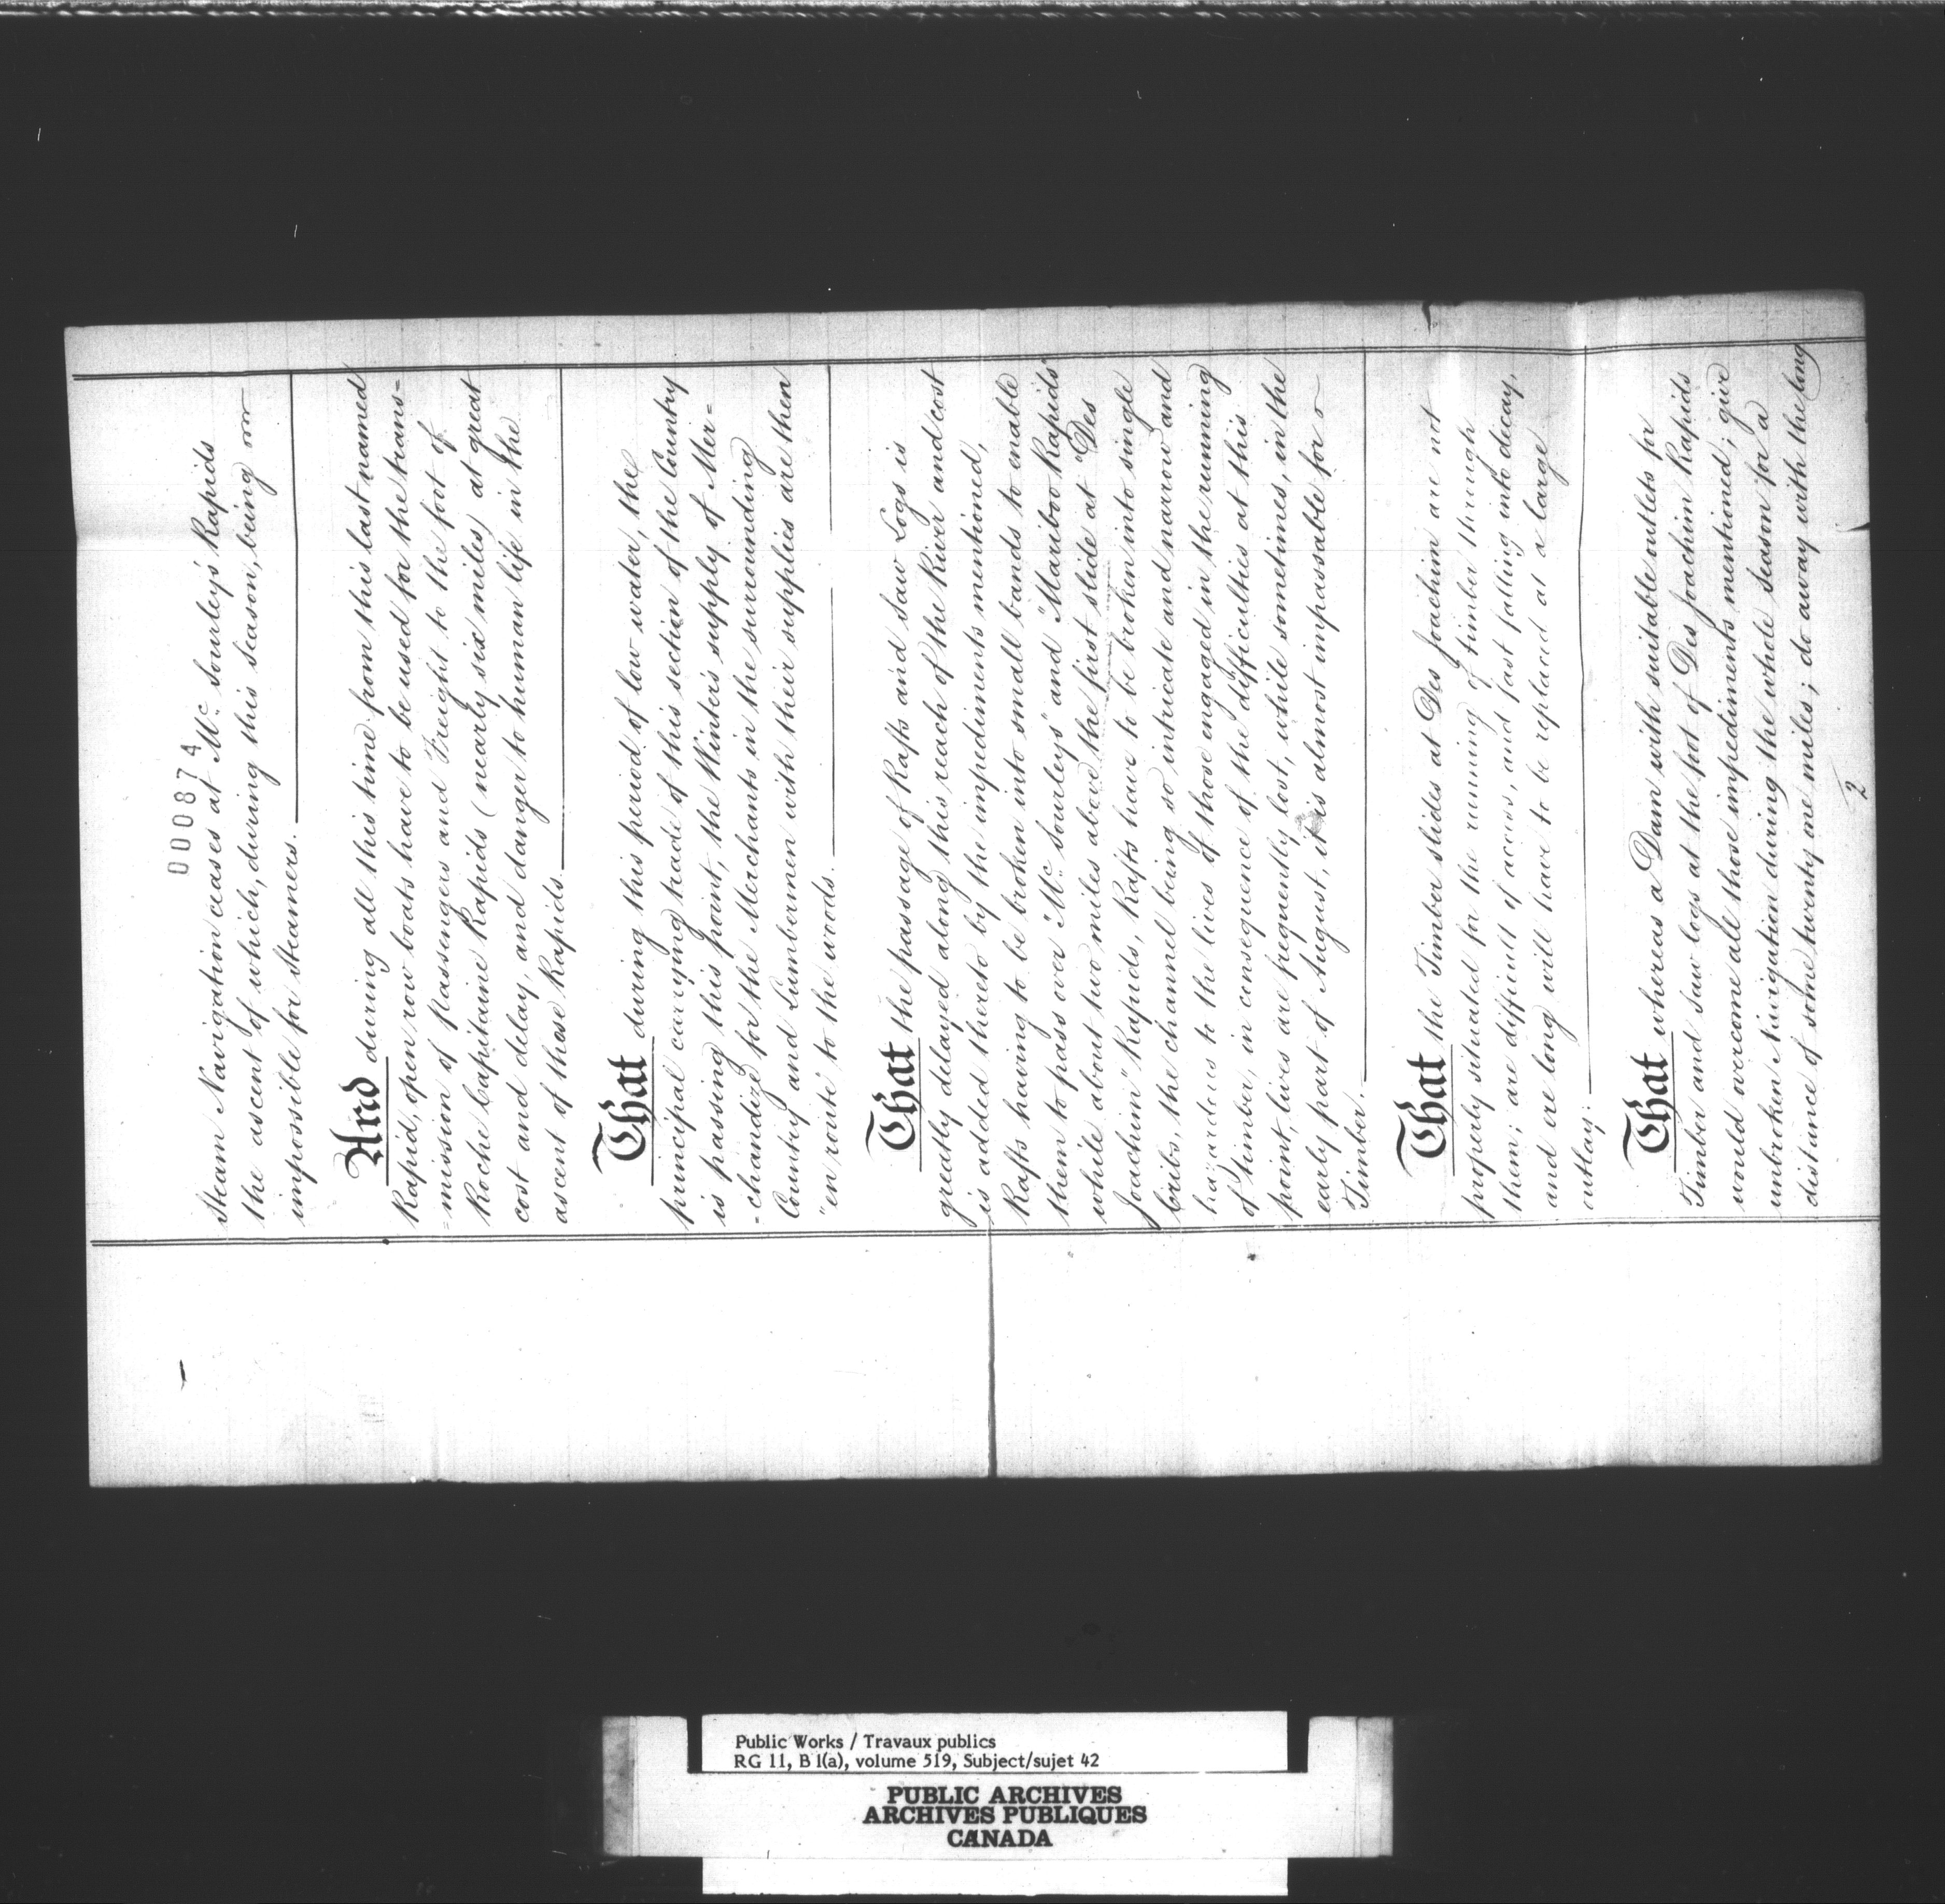 000874
Steam Navigation ceases at Mc Sourley's Rapids
the ascent of which, during this season, being
impossible for Steamers.
And during all this time from this last named
Rapid, open row boats have to be used for the trans=
=mission of Passengers and Freight to the foot of
Roche Capitaine Rapids (nearly six miles) at great
cost and delay, and danger to human life in the
ascent of those Rapids.
That during this period of low water, the
principal carrying trade of this section of the Country
is passing this point, the Winter's supply of Mer=
=chandize for the Merchants in the surrounding
Country and Lumbermen with their supplies are then
"en route" to the woods.
That the passage of Rafts and Saw Logs is
greatly delayed along this reach of the River and cost
is added thereto by the impediments mentioned,
Rafts having to be broken into small bands to enable
them to pass over "Mc Sourleys" and "Mariboo Rapids"
while about two miles above the first slide at "Des
Joachim" Rapids, Rafts have to be broken into single
Cribs, the channel being so intricate and narrow and
hazardous to the lives of those engaged in the running
of Timber, in consequence of the difficulties at this
point, lives are frequently lost, while sometimes, in the
early part of August, it is almost impassable for
Timber.
That the Timber slides at Des Joachim are not
properly situated for the running of timber through
them; are difficult of access, and fast falling into decay,
and ere long will have to be replaced at a large
outlay:
That whereas a Dam with suitable outlets for
Timber and Saw logs at the foot of Des Joachim Rapids
would overcome all those impediments mentioned; give
unbroken Navigation during the whole season for a
distance of some twenty one miles; do away with the long
2
Public Works / Travaux publics
RG 11, B 1(a), volume 519, Subject/sujet 42
PUBLIC ARCHIVES
ARCHIVES PUBLIQUES
CANADA